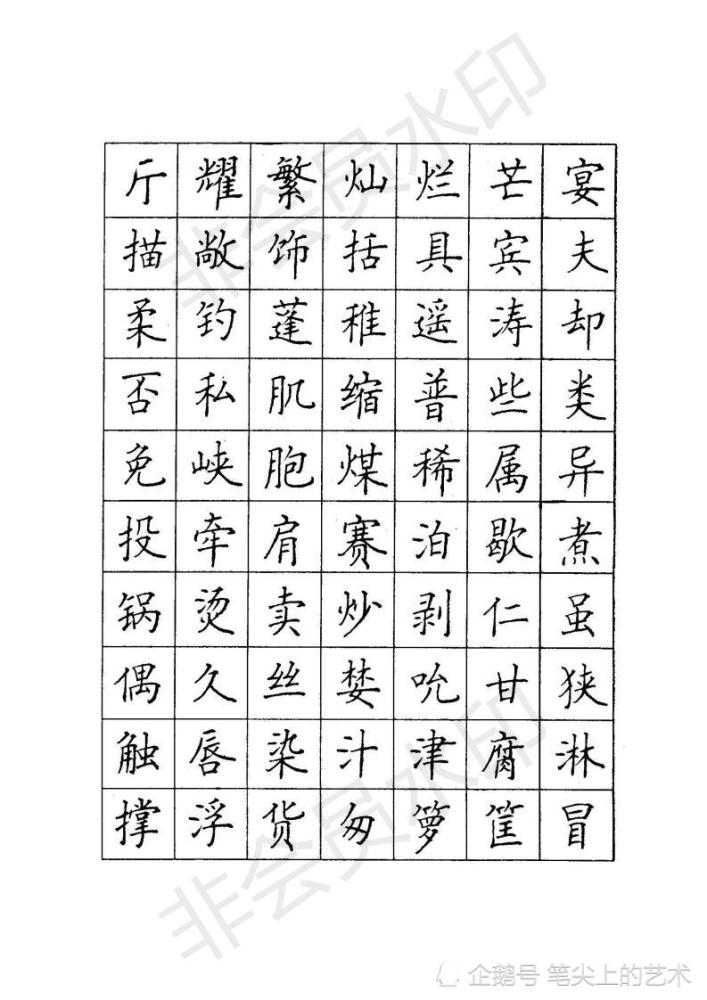 斤 耀 繁 灿 烂 芒 宴
描 敞 饰 括 具 宾 夫
柔 钓 蓬 稚 遥 涛 却
否 私 肌 缩 普 些 类
免 峡 胞 煤 稀 属 异
投 牵 肩 赛 泊 歇 煮
锅 烫 卖 炒 剥 仁 虽
偶 久 丝 婪 吮 甘 狭
触 唇 染 汁 津 腐 淋
撑 浮 货 匆 箩 筐 冒
非会员水印
非会员水印
企鹅号 笔尖上的艺术